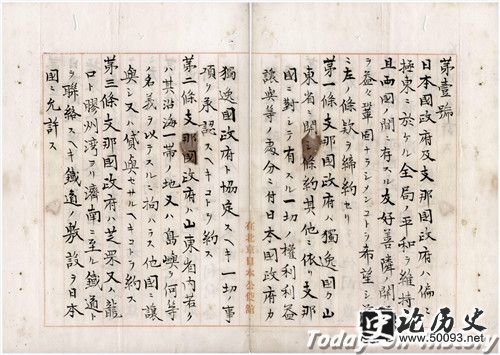 第壹號
日本國政府及支那國政府ハ偏ニ
極東ニ於ケル全局ノ平和ヲ維持
且兩國ノ間ニ存スル友好善隣ノ關
ヲ益々鞏固ナラシメンコトヲ希望シ
ニ左ノ條款ヲ締約セリ
第一條支那國政府ハ獨逸國カ山
東省ニ關シ條約其他ニ依リ支那
國ニ對シテ有スル一切ノ權利利益
讓與等ノ處分ニ付日本國政府カ
在北京日本公使館
獨逸國政府ト協定スヘキ一切ノ事
項ヲ承認スヘキコトヲ約ス
第二條支那國政府ハ山東省内若ク
ハ其沿海一帶ノ地又ハ島嶼ヲ何等
ノ名義ヲ以テスルニ拘ラス他國ニ讓
與シ又ハ貸與セサルヘキコトヲ約ス
第三條支那國政府ハ芝罘又ハ龍
口ト膠州灣ヨリ濟南ニ至ル鐵道ト
ヲ聯絡スヘキ鐵道ノ敷設ヲ日本
國ニ允許ス
论历史
www.50093.net
Today On History